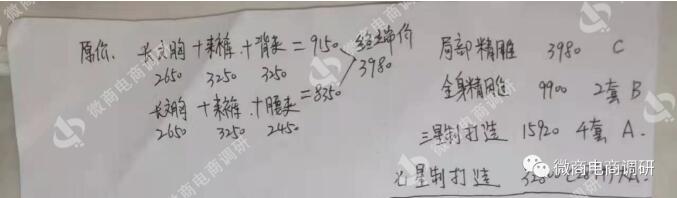 原价、长文胸+束裤+背夹=9150
2650 3250 3250
经销价
3980
长文胸+束裤+腰夹=8350
2650 3250 2450
局部精雕 3980 C
全身精雕 9900 2套 B
三星制打造 15920 4套 A.
星制打造
微商电商调研